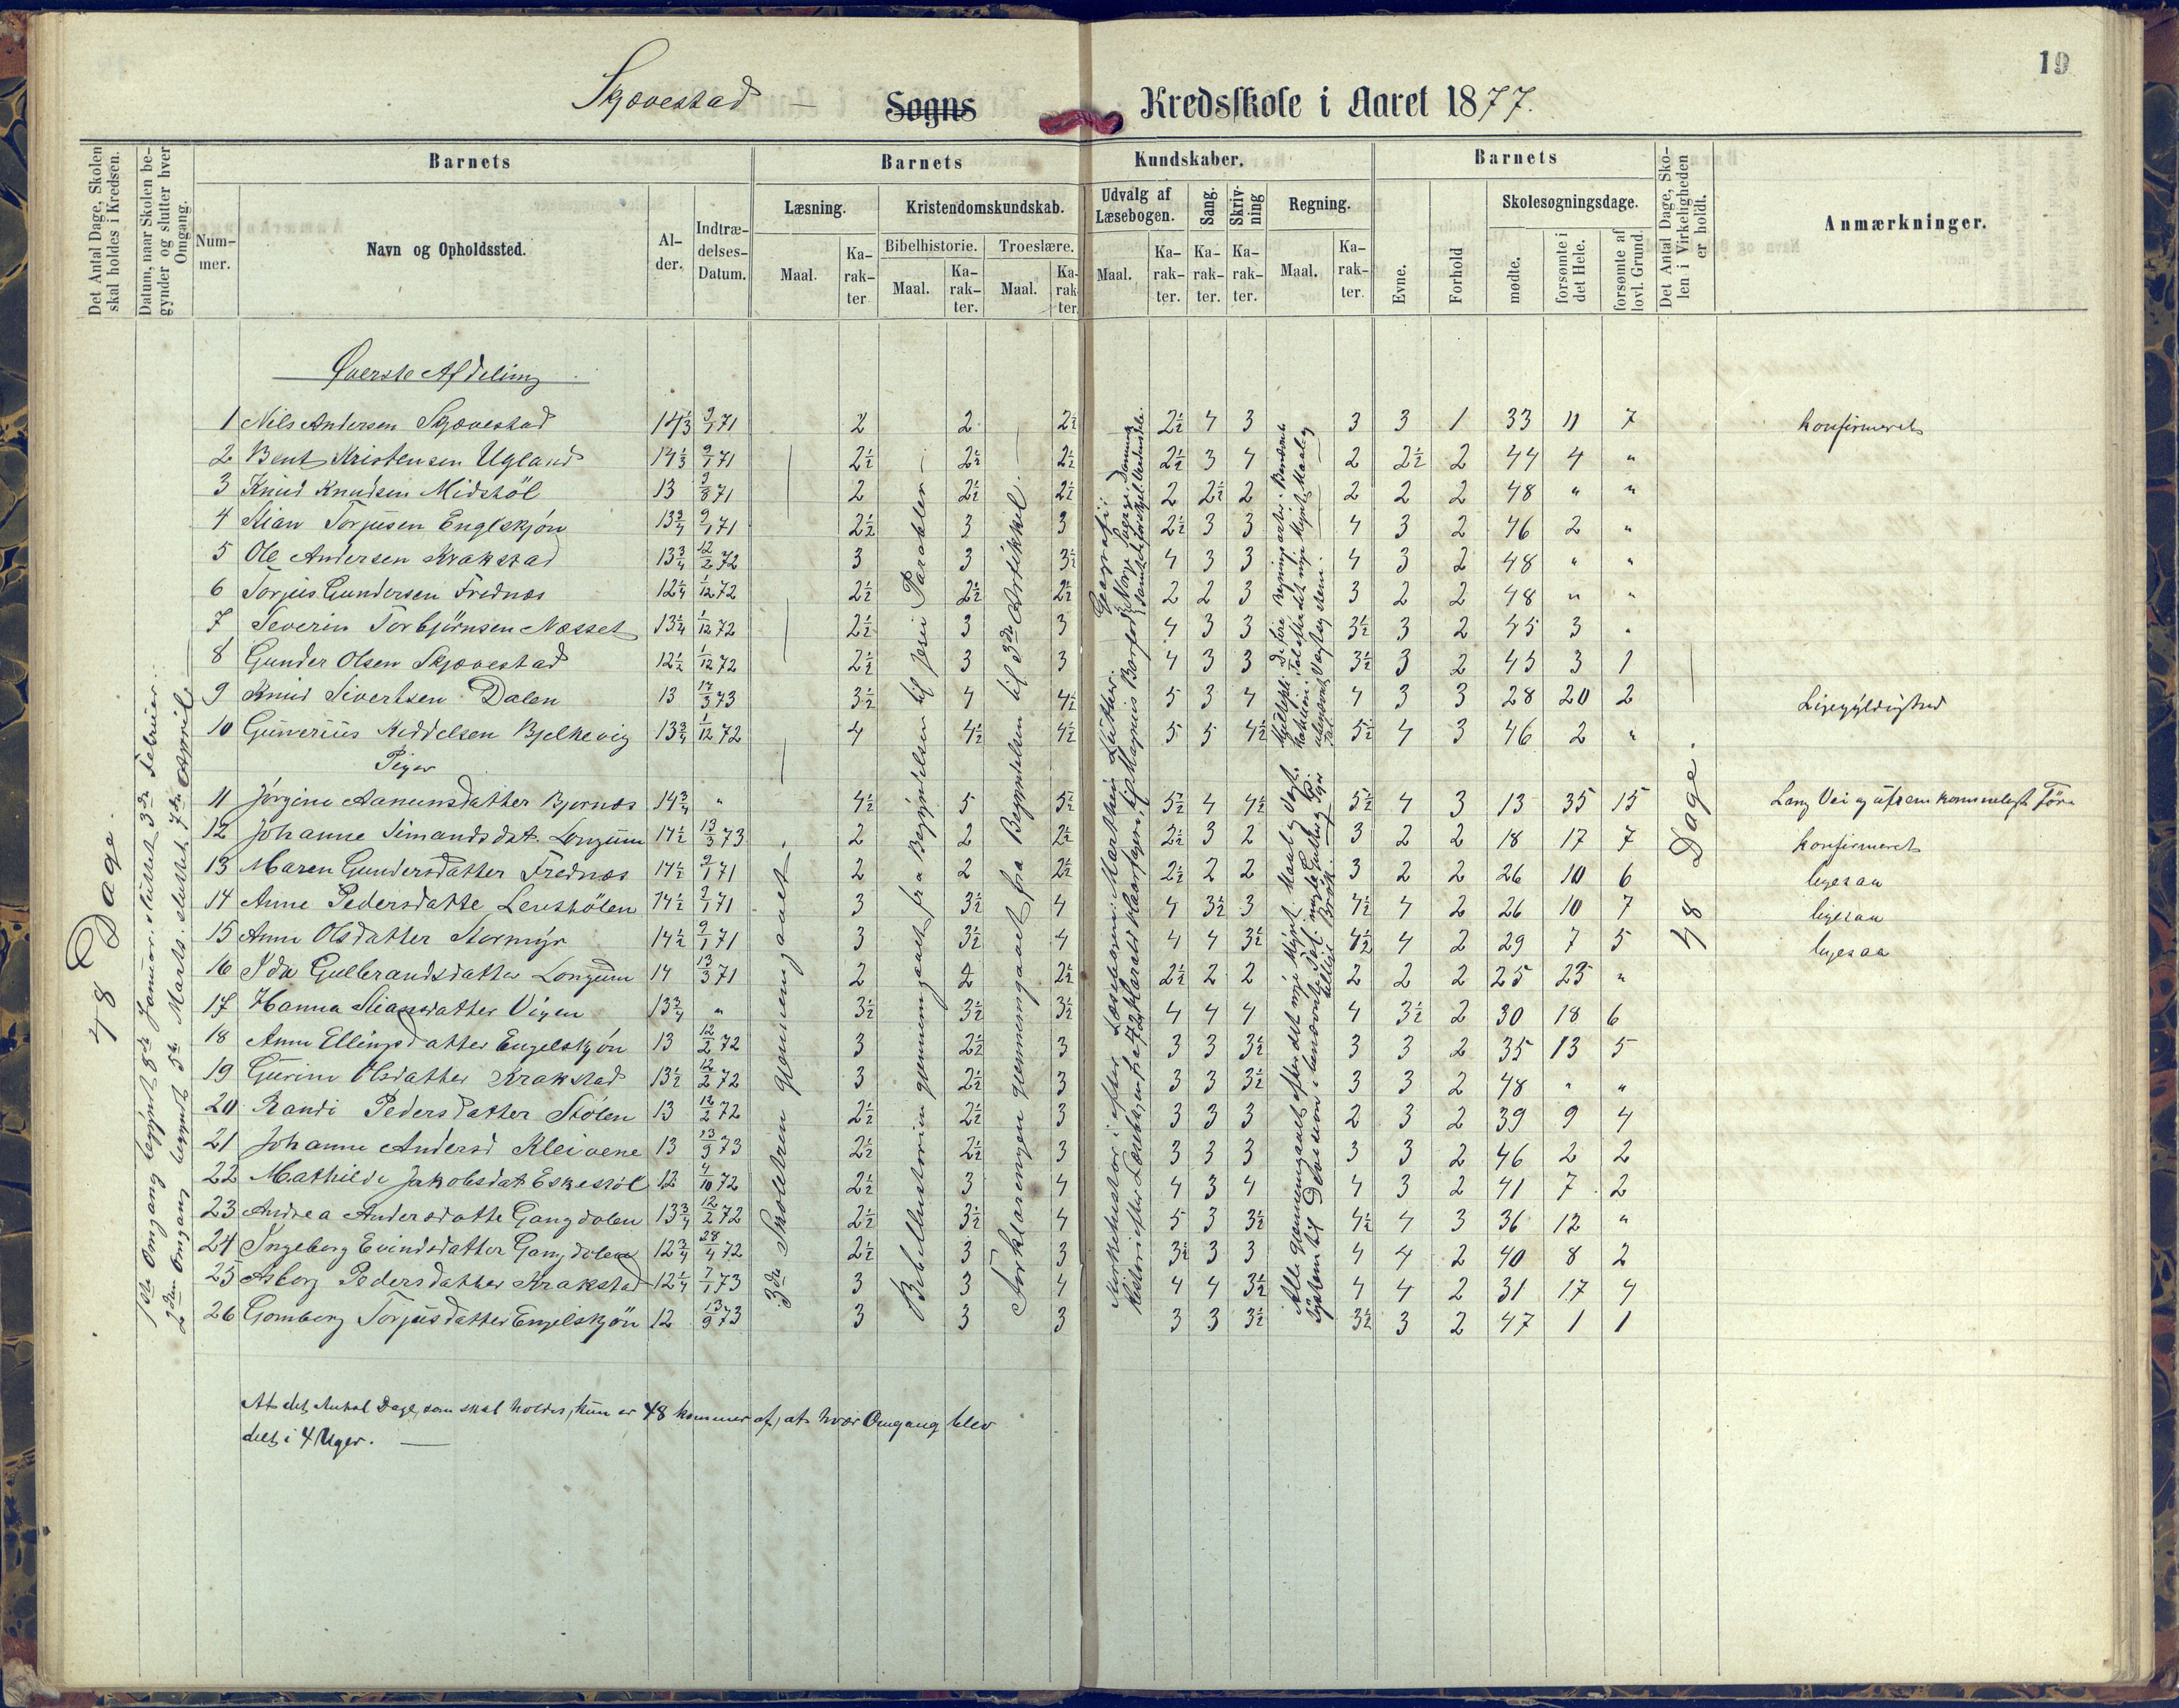 19
Skjævestad - Sogns Kredsskole i Aaret 1877.
Det Antal Dage, Skolen skal holdes i Kredsen.
Datum, naar Skolen begynder og slutter hver Omgang.
Barnets
Nummer.
Navn og Opholdssted.
Alder.
Indtrædelses-Datum.
Barnets Kundskaber.
Læsning.
Maal.
Karakter
Kristendomskundskab.
Bibelhistorie.
Maal.
Karakter.
Troeslære.
Maal.
Karakter.
Udvalg af Læsebogen.
Maal.
Karakter.
Sang.
Karakter.
Skrivning
Karakter.
Regning.
Maal.
Karakter.
Barnets
Evne.
Forhold
Skolesøgningsdage.
mødte.
forsømte i det Hele.
forsømte af lovl. Grund.
Det Antal Dage, Skolen i Virkeligheden er holdt.
Anmærkninger.
48 Dage.
1ste Omgang begyndt 8de Januar. Sluttet 3de Februar.
2den Omgang begyndt 5te Marts. sluttet 7de April
Øverste Afdeling
1 Nils Andersen Skjævestad 14 1/3 9/1 71 2 2 2 1/2 2 1/2 4 3 3 3 1 33 11 7 konfirmeret
2 Bent Kristensen Ugland 14 1/3 9/1 71 2 1/2 2 1/2 2 1/2 2 1/2 3 4 2 2 1/2 2 44 4 "
3 Knud Knudsen Midstöl 13 71 2 2 1/2 2 1/2 2 2 1/2 2 2 2 2 48 " "
4 Stian Torjusen Englskjøn 71 2 1/2 3 3 2 1/2 3 3 4 3 2 46 2 "
5 Ole Andersen Krakstad 13 3/4 12/2 72 3 3 3 1/2 4 3 3 4 3 2 48 " "
6 Torjus Gundersen Frednæs 12 1/4 1/12 72 2 1/2 2 1/2 2 1/2 2 2 3 3 2 2 48 " "
7 Severin Torbjörnsen Næsset 13 1/4 1/12 72 2 1/2 3 3 4 3 3 3 1/2 3 2 45 3 "
8 Gunder Olsen Skjævestad 12 1/2 1/12 72 2 1/2 3 3 4 3 3 3 1/2 3 2 45 3 1
9 Knud Sivertsen Dalen 13 73 3 1/2 4 4 1/2 5 3 4 4 3 3 28 20 2 Ligegyldighed
10 Gunerius Keddelsen Bjelkevig 13 3/4 1/12 72 4 4 1/2 4 1/2 5 5 4 1/2 5 1/2 4 3 46 2 "
Piger
11 Jörgine Aanensdatter Bjornæs 14 3/4 " 4 1/2 5 5 1/2 5 1/2 4 4 1/2 5 1/2 4 3 13 35 15 Lang Vei og ufremkommeligt Före
12 Johanne Simandsdat. Longum 14 1/2 13/3 73 2 2 2 1/2 2 1/2 3 2 3 2 2 18 17 7 konfirmeret
13 Maren Gundersdatter Frednæs 14 1/2 9/1 71 2 2 2 1/2 2 1/2 2 2 3 2 2 26 10 6 ligesaa
14 Anne Pedersdatte Lenstölen 14 1/2 9/1 71 3 3 1/2 4 4 3 1/2 3 4 1/2 4 2 26 10 7 ligesaa
15 Anne Olsdatter Stormÿr 14 1/2 9/1 71 3 3 1/2 4 4 4 3 1/2 4 1/2 4 2 29 7 5 ligesaa
16 Ida Gulbrandsdatter Longum 14 13/3 71 2 2 2 1/2 2 1/2 2 2 2 2 2 25 23 "
17 Hanna Stiansdatter Vigen 13 3/4 " 3 1/2 3 1/2 3 1/2 4 4 4 4 3 1/2 2 30 18 6
18 Anne Ellingsdatter Engelskjön 13 12/2 72 3 2 1/2 3 3 3 3 1/2 3 3 2 35 13 5
19 Gurine Olsdatter Krakstad 13 1/2 12/2 72 3 2 1/2 3 3 3 3 1/2 3 3 2 48 " "
20 Randi Pedersdatter Stölen 13 12/2 72 2 1/2 2 1/2 3 3 3 3 2 3 2 39 9 4
21 Johanne Andersd Kleivene 13 73 2 1/2 2 1/2 3 3 3 3 3 3 2 46 2 2
22 Mathilde Jakobsdat Eskestöl 12 4/10 72 2 1/2 3 4 4 3 4 4 3 2 41 7 2
23 Andrea Andersdatte Gangdalen 13 3/4 12/2 72 2 1/2 3 1/2 4 5 3 3 1/2 4 1/2 4 3 36 12 "
24 Ingeborg Evindsdatter Gangdalen 12 3/4 28/4 72 2 1/2 3 3 3 1/2 3 3 4 4 2 40 8 2
25 Asborg Pedersdatter Krakstad 12 1/4 7/1 73 3 3 4 4 4 3 1/2 4 4 2 31 17 4
26 Gomborg Torjusdatter Engelskjön 12 13/9 73 3 3 3 3 3 3 1/2 3 1/2 3 2 47 1 1
3die Skoletren gjennemgaaet.
Bibelhistorien gjennemgaaet fra Begÿndelsen til Jesu Parabler
Forklaringen gjennemgaaet fra Begyndelsen til 3die Artikkel.
Kirkehistorie efter Læsebogen: Marthin Luther. Geografi:
Historie efter Læsebogen fra Harald Haarfagre til Magnus Barfod
Alle gjennemgaaet efter det nye Mynt, Maal og Vægt-
system til Division
48 Dage.
At det Antal Dage, som skal holdes, kun er 48 kommer af, at hver Omgang blev
delt i 4 Uger.